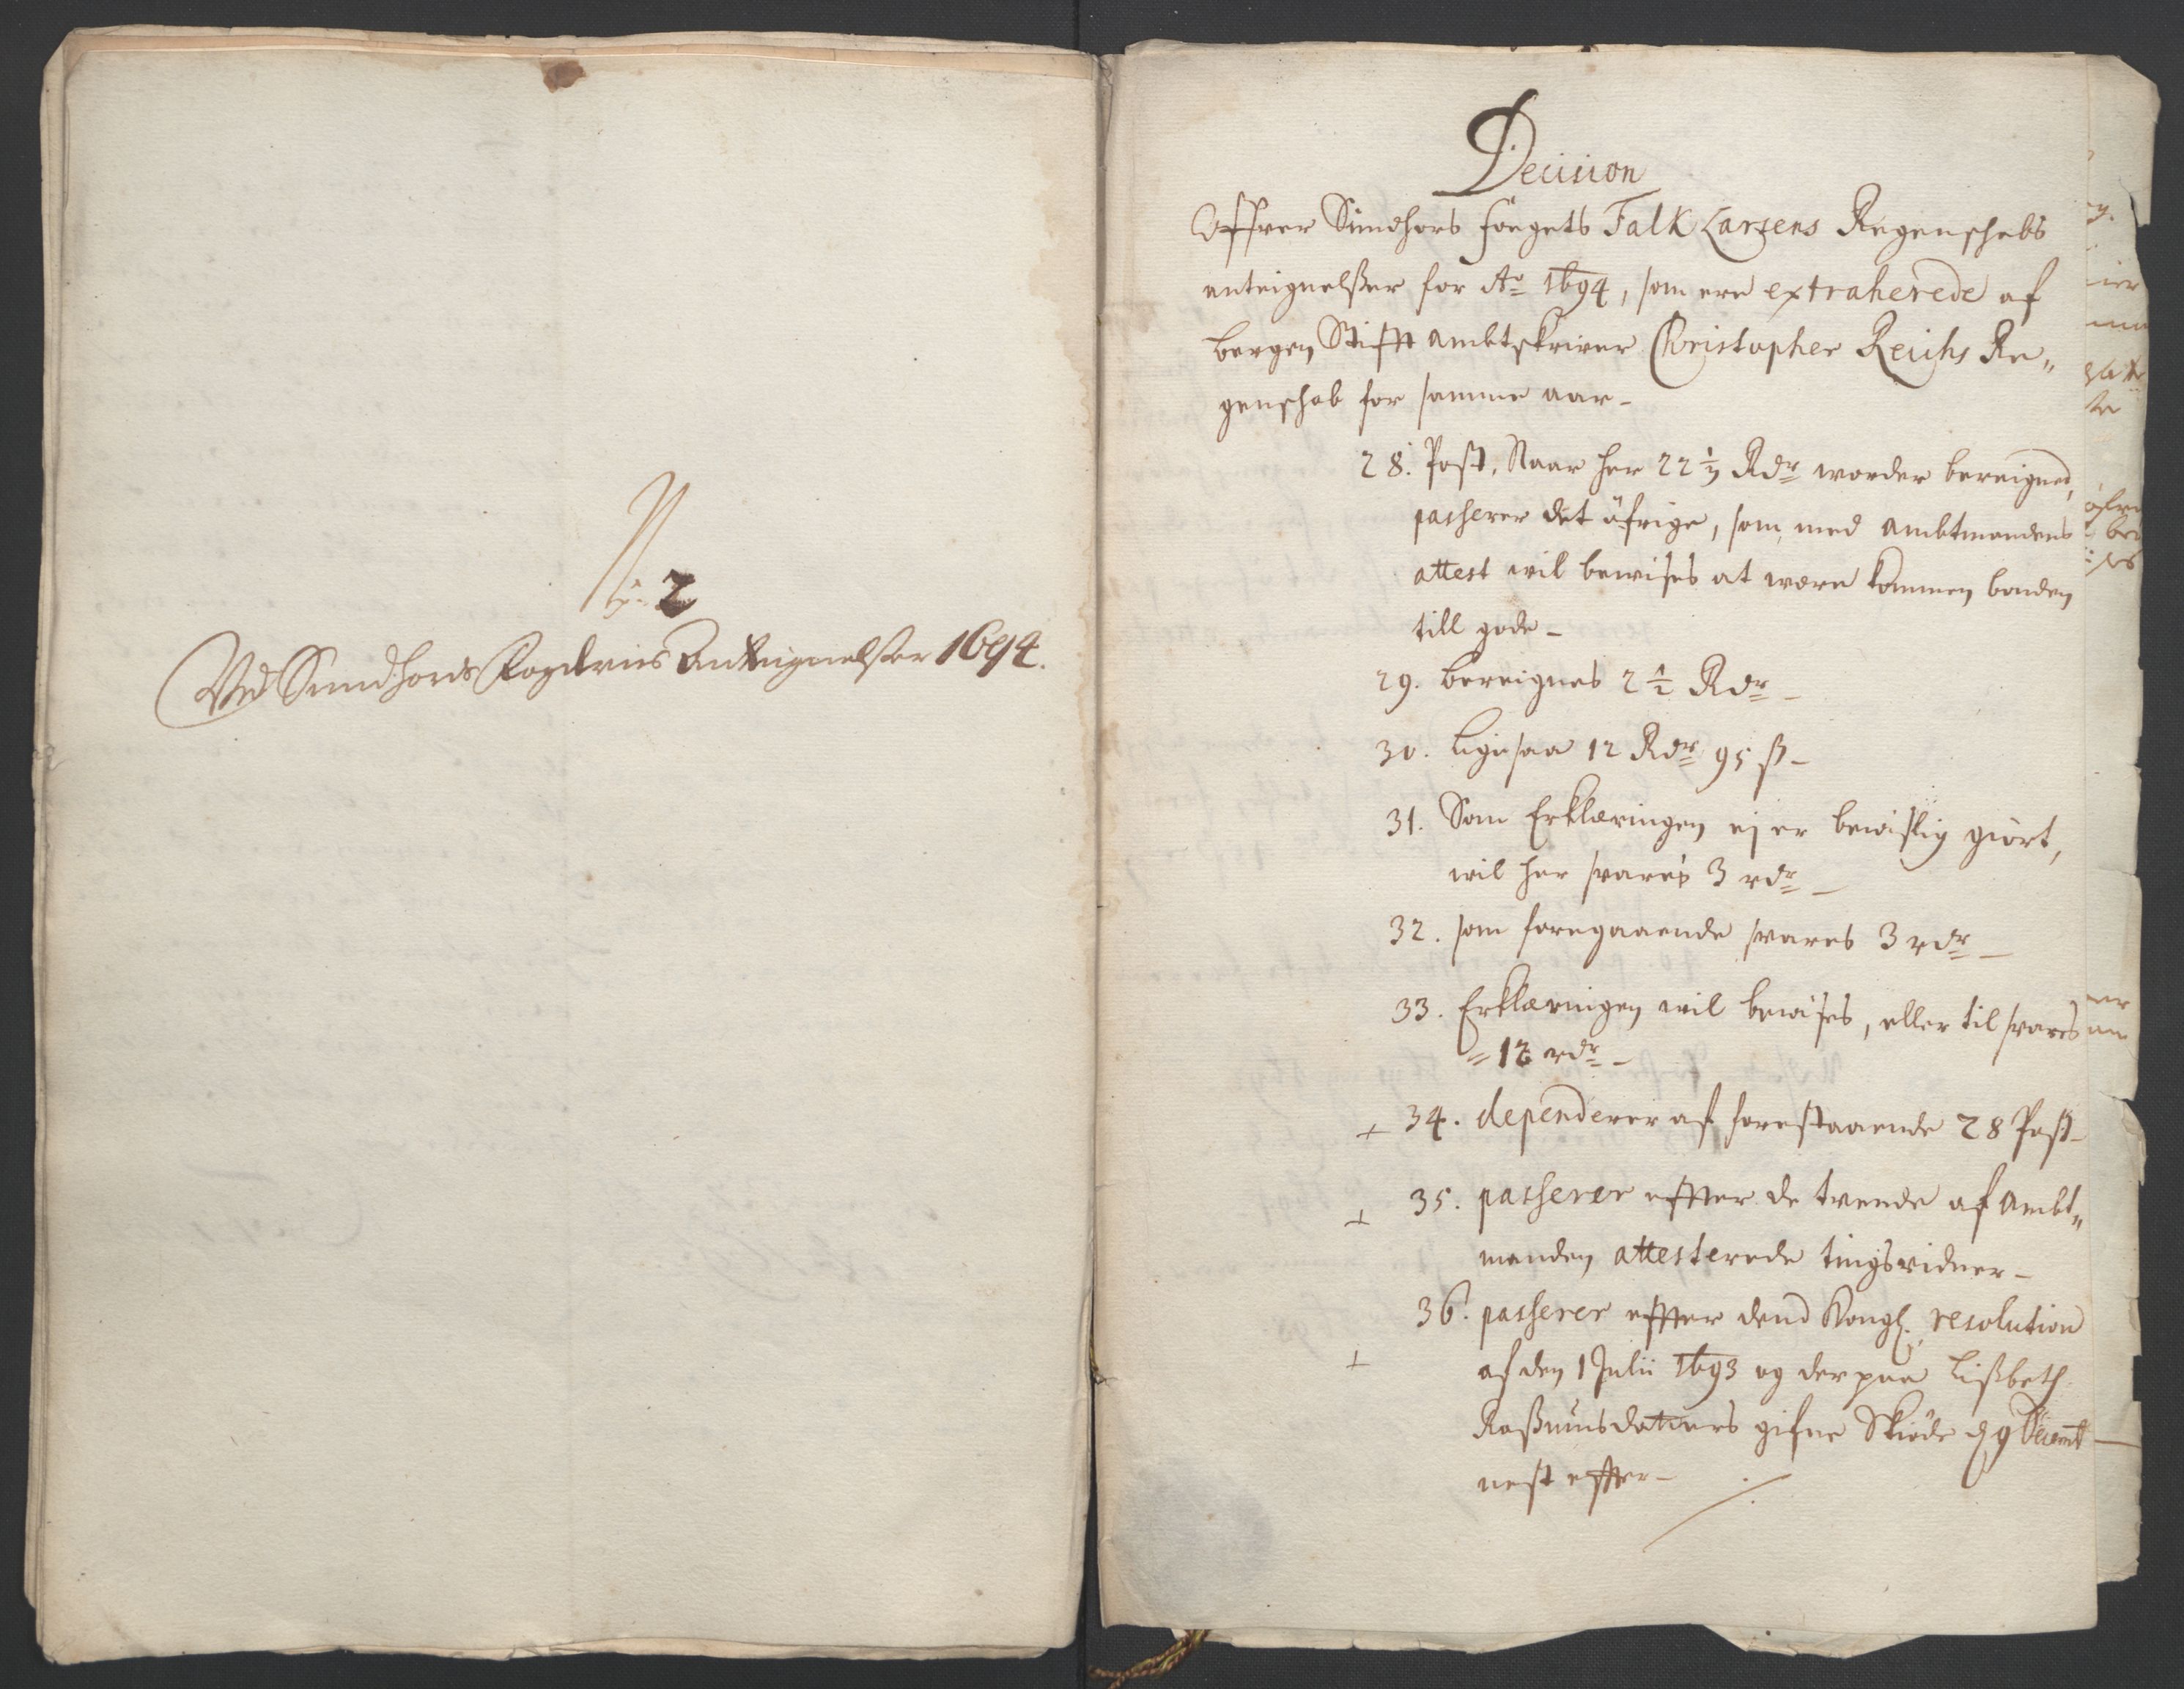 No 2
Ved Sundhords Fogderies Anteignelser 1694.
Decision
Offver Sundhors fougets Falk Larsens Regenschabs
anteignelßer for Ao 1694, som ere extraherede af
bergen Stifft Ambtskriver Christopher Reichs Re„
genschab for samme aar –
28. Post, Naar her 22½ Rdr worder bereigned,
passerer det öfrige, som med Ambtmandens
attest wil bewises at were kommen bonden
till gode –
29. bereignes 2½ Rdr –
30. Ligesaa 12 Rdr 95 ß –
31. Som Erklæringen ej er bewislig giort,
wil her svares 3 rdr –
32. som foregaaende svares 3 rdr –
33. Erklæringen wil bewises, eller til svares
= 12 rdr –
+ 34. dependerer af forestaaende 28 Post –
+ 35. passerer effter de tvende af Ambt„
manden attesterede tingsvidner –
+ 36. passerer effter dend Kongl. resolution
af den 1 Julii 1693 og der paa Lißbeth
Raßmusdatters gifne Skiöde d. 9 Decemb
nest effter –